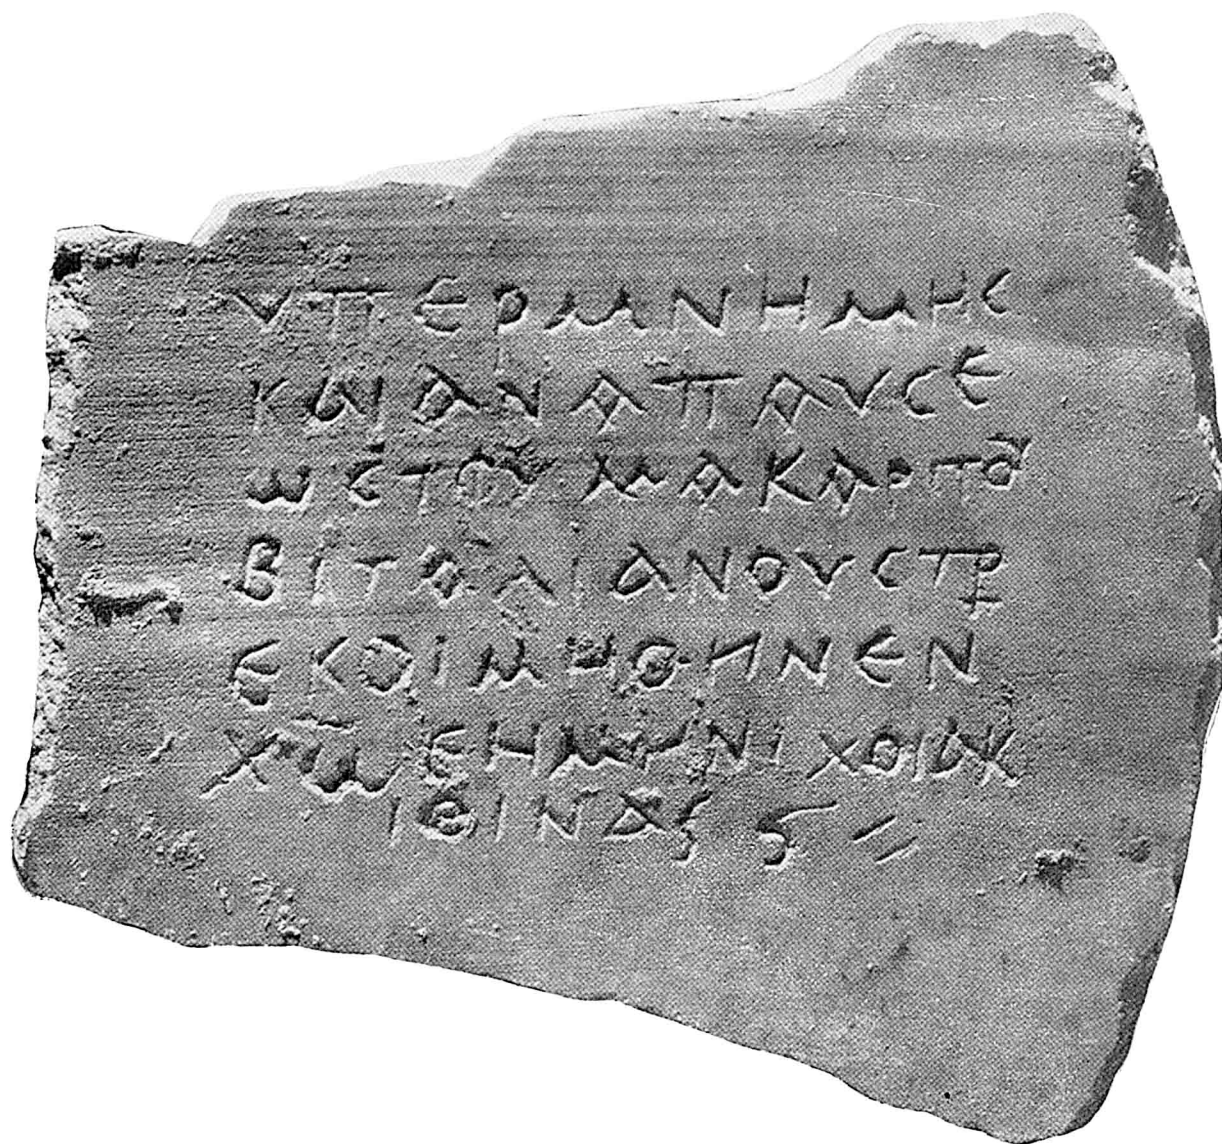 ΥΠΕΡΜΝΗΜΗΣ
ΚΑΙΑΝΑΠΑΥΣΕ
ΩΣΤΟΥΜΑΚΑΡΙΤΟΥ
ΒΙΤΑΛΙΑΝΟΥΣΤΡ
ΕΚΟΙΜΗΘΗΝΕΝ
ΧΩΕΗΜΗΝΙΧΟΙΑΚ
ΙΘΙΝΔϚ Ϛ //